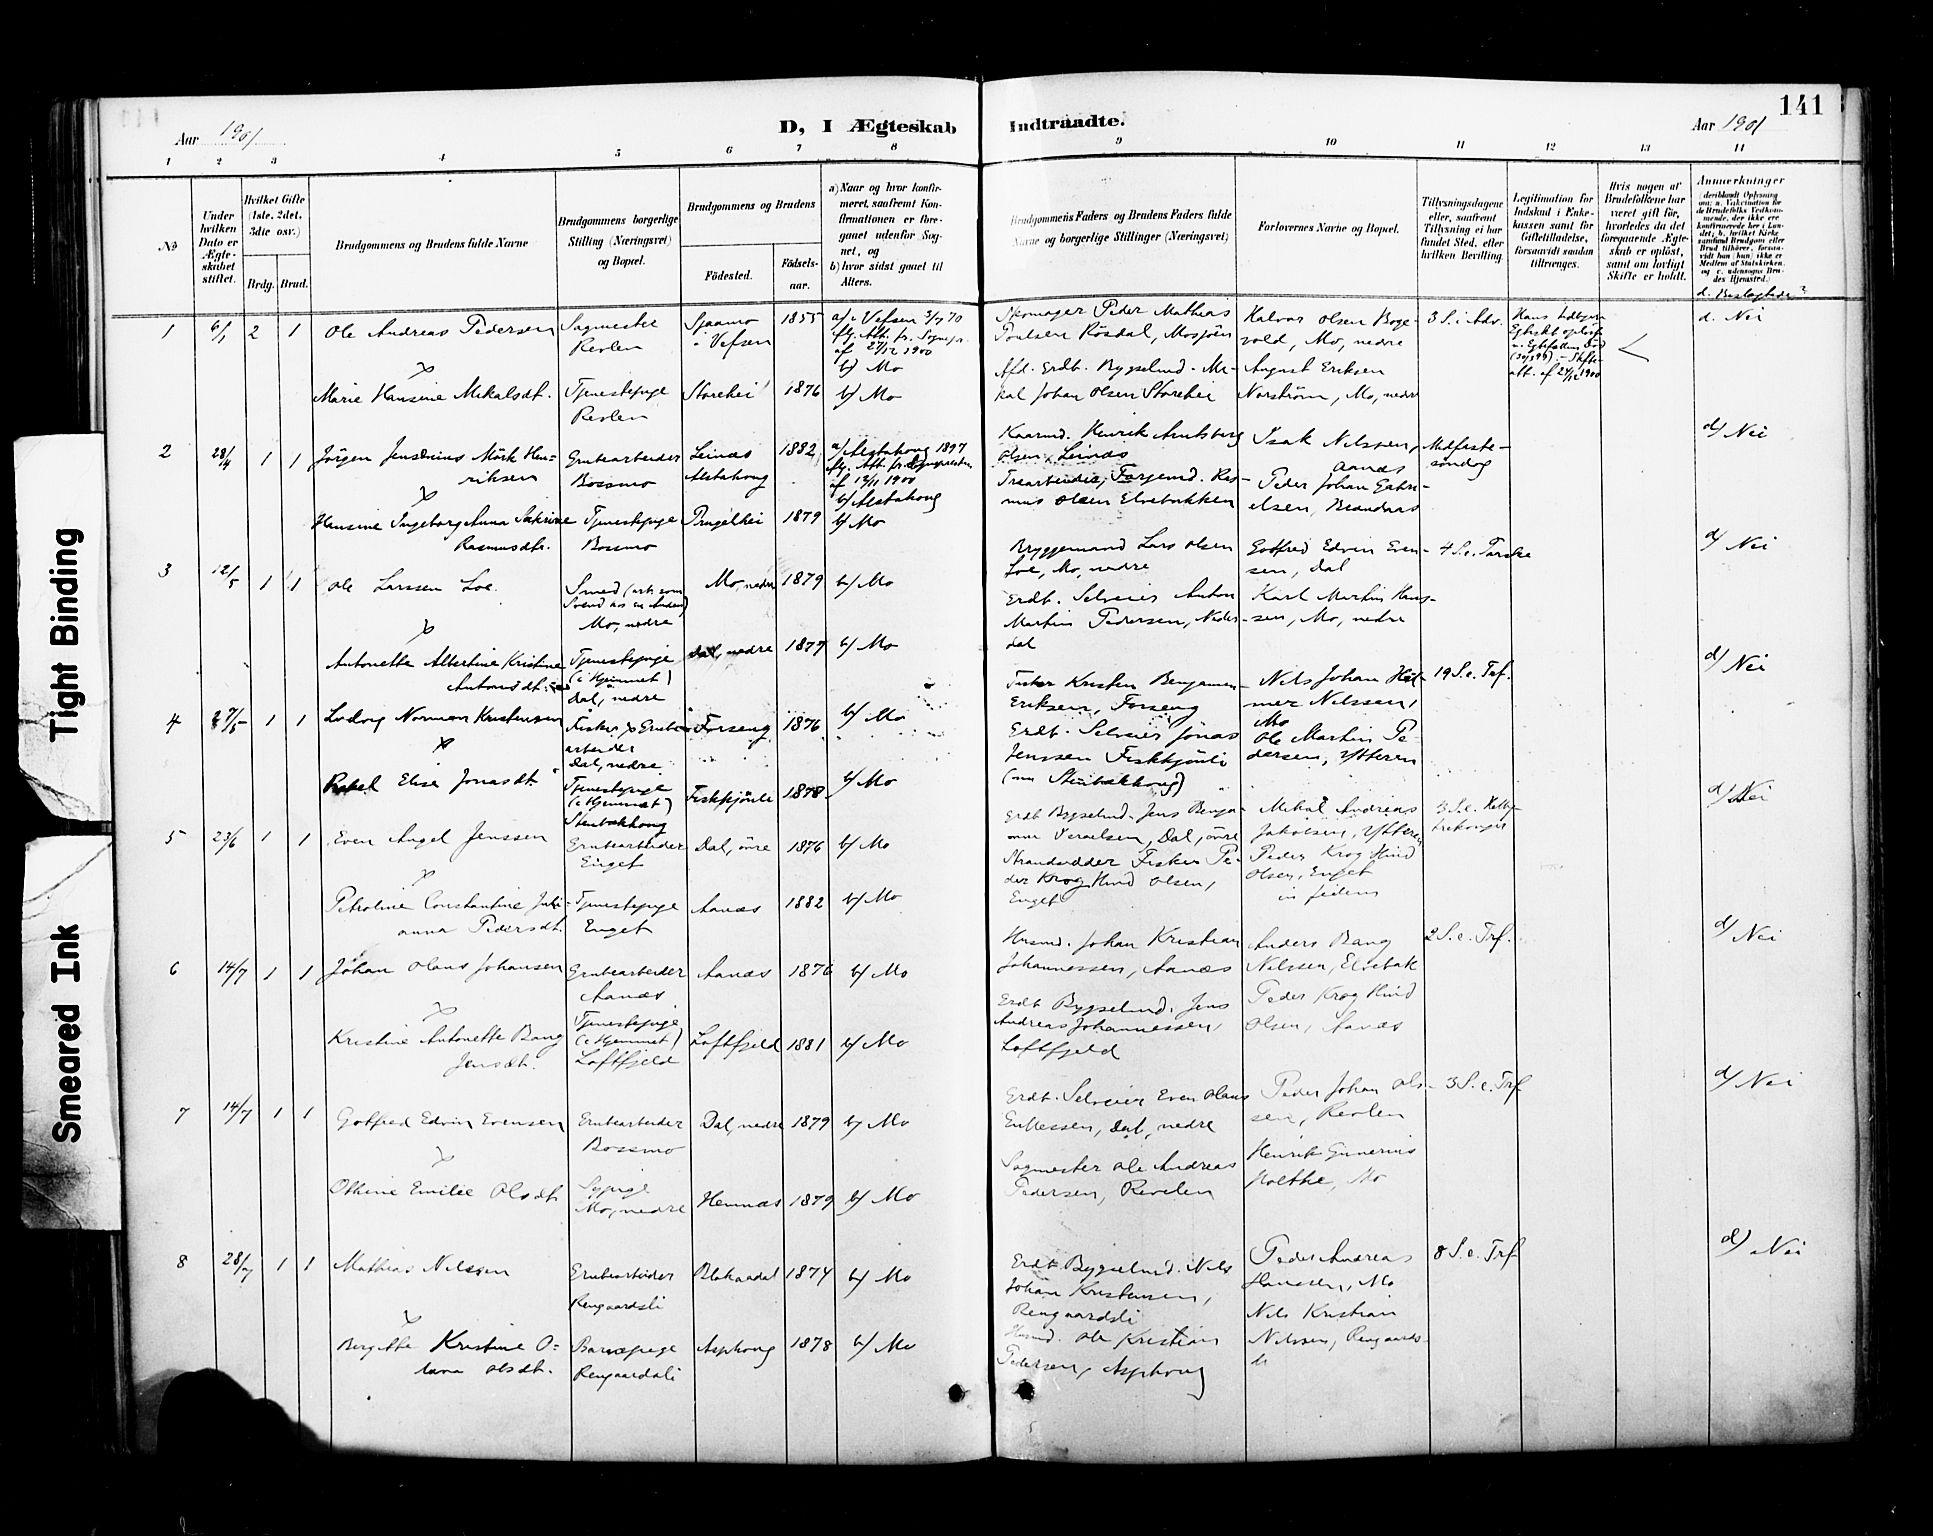 141
Aar 1901
D, I Ægteskab Indtraadte.
Aar 1901
1 2 3 4 5 6 7 8 9 10 11 12 13 14
No
Under hvilken Dato er Ægteskabet stiftet.
Hvilket Gifte (1ste, 2det, 3die osv.)
Brdg. Brud.
Brudgommens og Brudens fulde Navne
Brudgommens borgerlige Stilling (Næringsvei) og Bopæl.
Brudgommens og Brudens
Födested.
Födselsaar.
a) Naar og hvor konfirmeret, saafremt Konfirmationen er foregaaet udenfor Sognet, og
b) hvor sidst gaaet til Alters.
Brudgommens Faders og Brudens Faders fulde Navne og borgerlige Stillinger (Næringsvei)
Forlovernes Navne og Bopæl.
Tillysningsdagene eller, saafremt Tillysning ei har fundet Sted, efter hvilken Bevilling.
Legitimation for Indskud i Enkekassen samt for Giftetilladelse, forsaavidt saadan tiltrænges.
Hvis nogen af Brudefolkene har været gift før, hvorledes da det foregaaende Ægteskab er oplöst, samt om lovligt Skifte er holdt.
Anmerkninger
d. Beslægtede?
1 6/1 2 1 Ole Andreas Pedersen
Sagmester
Revlen
Sjaamo
i Vefsen
1855
a/ i Vefsen 3/7 70
af 27/12 1900
b) Mo
Skomager Peder Mathias
Poulsen Rösdal, Mosjöen
Halvor Olsen Boge-
vold, Mo, nedre
3 S. i Adv.
d. Nei
Marie Hansine Mikalsdt.
Tjenestepige
Revlen
Storehei
1876
b/ Mo
Afd. Erdt. Bygselmd. Mi-
kal Johan Olsen Storehei
August Eriksen
Norström, Mo, nedre
2 28/4 1 1
Grubearbeider
Bossmo
Leinæs
Alstahoug
1882
a/ Alstahoug 1897
af 12/11 1900
b/ Alstahoug
Olsen Leinæs
Isak Nilssen,
Aanæs
Midfaste-
söndag
d/ Nei
Hansine Ingeborg Anna
Rasmusdtr.
Tjenestepige
Bossmo
1879
b/ Mo
mus Olsen Elvebakken
Peder Johan Gabri-
elsen, Brandaas
3 12/5 1 1 Ole Larssen Loe.
Smed (arb. som
Svend hos en Anden)
Mo, nedre
Mo, nedre
1879
b/ Mo
Bryggemand Lars Olsen
Loe, Mo, nedre
Gotfred Edvin Even-
sen, Dal
4 S. e. Paaske
d/ Nei
Antonette Albertine Kristine
Antonsdt.
Tjenestepige
(i Hjemmet)
Dal, nedre
Dal, nedre
1877
b/ Mo
Erdt. Selveier Anton
Martin Pedersen, Neder-
dal
Karl Martin Han-
sen, Mo, nedre
4 27/5 1 1 Ludvig Norman Kristensen
Fisker & Grube-
arbeider
Dal, nedre
Forseng
1876
b/ Mo
Fisker Kristen Benjamin
Eriksen, Forseng
Nils Johan Hil-
mer Nilssen,
Mo
19 S. e. Trf.
d/ Nei
Rakel Elise Jonasdt.
Tjenestepige
(i Hjemmet)
Stenbækhoug
Fiskkjönli
1878
b/ Mo
Erdt. Selveier Jonas
Jenssen Fiskkjönli
(nu Stenbækhoug)
Ole Martin Pe-
dersen, Ytteren
5 23/6 1 1 Even Angel Jenssen
Grubearbeider
Enget
Dal, övre
1876
b/ Mo
Erdt. Bygselmd. Jens Benja-
min Veraelsen, Dal, övre
Mikal Andreas
Jakobsen, Ytteren
d/ Nei
Petroline Constantine Juli-
anna Pedersdt.
Tjenestepige
Enget
Aanæs
1882
b/ Mo
Strandsidder Fisker Pe-
der Krog Hind Olsen,
Enget
Peder Krog Hind
Olsen, Enget
in fidem
6 14/7 1 1 Johan Olaus Johansen
Grubearbeider
Aanæs
Aanæs
1876
b/ Mo
Husmd. Johan Kristian
Johannessen, Aanæs
Anders Bang
Nilssen, Elvebak
2 S. e. Trf.
d/ Nei
Kristine Antonette Bang
Jensdt.
Tjenestepige
(i Hjemmet)
Loftfjeld
Loftfjeld
1881
b/ Mo
Erdt. Bygselmd. Jens
Andreas Johannessen,
Loftfjeld
Peder Krog Hind
Olsen, Aanæs
7 14/7 1 1 Gotfred Edvin Evensen
Grubearbeider
Bossmo
Dal, nedre
1879
b/ Mo
Erdt. Selveier Even Olaus
Dal, nedre
Peder Johan Ol-
sen, Revlen
3 S. e. Trf.
d/ Nei
Othine Emilie Olsdt.
Sypige
Mo, nedre
Hemnæs
1879
b/ Mo
Sagmester Ole Andreas
Pedersen, Revelen
Henrik Gunerius
Holthe, Mo
8 28/7 1 1 Mathias Nilssen
Grubearbeider
Rengaardsli
Blakaadal
1874
b/ Mo
Erdt. Bygselmd. Nils
Johan Kristensen,
Rengaardsli
Peder Andreas
Hanssen, Mo
8 S. e. Trf.
d/ Nei
Birgitte Kristine O-
lava Olsdt.
Barnepige
Rengaardsli
Asphoug
1878
b/ Mo
Husmd. Ole Kristian
Pedersen, Asphoug
Nils Kristian
Nilssen, Rengaards-
li
Tight Binding
Smeared Ink